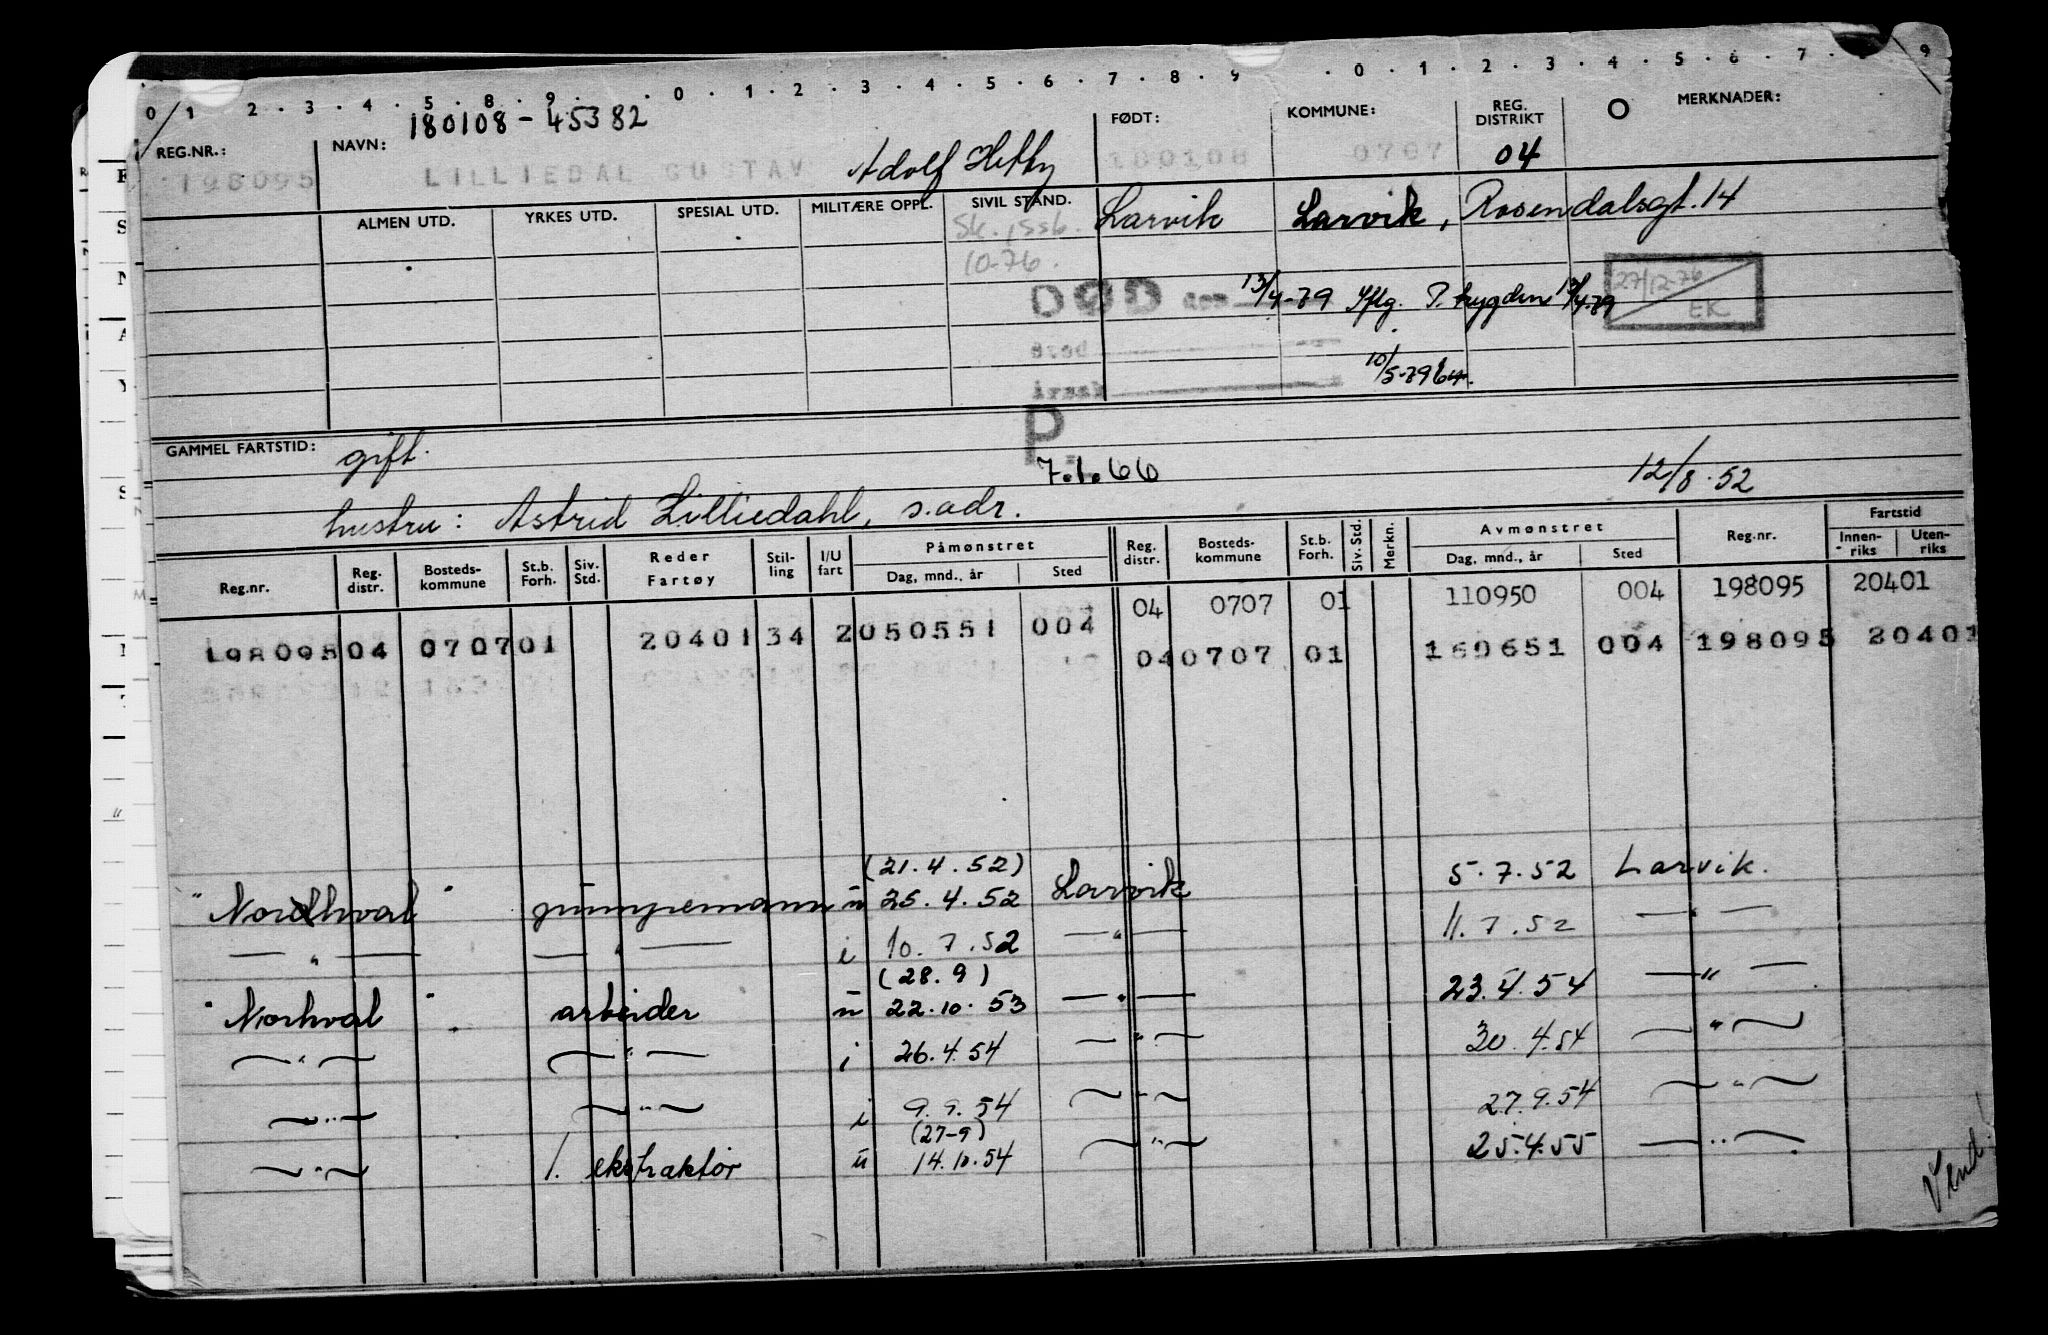 0 / 1 2 . 3 . 4 . 5 . 8 . 9 . . 0 . 1 . 2 . 3 . 4 . 5 . 6 . 7 . 8 . 9 . 0 . 1 . 2 . 3 . 4 . 5 . 6 . 7 . 9
180108-45382
REG.NR.: NAVN: FØDT: KOMMUNE: REG. DISTRIKT O MERKNADER:
198095 LILLIEDAL GUSTAV Adolf 180108 0707 04
ALMEN UTD. YRKES UTD. SPESIAL UTD. MILITÆRE OPPL. SIVIL STAND. Larvik Larvik, Rosendalsgt. 14
Sk.
10-76.
DØD den 13/4-79 Iflg. P. trygden 27/12-76
EK
Sted
Årsak 10/5-79
GAMMEL FARTSTID: gift. P
7.1.66 12/8.52
hustru: Astrid Lilliedahl, s.adr.
Reg.nr. Reg. distr. Bosteds-kommune St.b. Forh. Siv. Std. Reder Fartøy Stil-ling I/U fart Påmønstret Dag, mnd., år Sted Reg. distr. Bosteds-kommune St.b. Forh. Siv. Std. Merkn. Avmønstret Dag, mnd., år Sted Reg.nr. Fartstid Innen-riks Uten-riks
04 0707 01 110950 004 198095 20401
198095 04 0707 01 20401 34 2 050551 004 04 0707 01 160651 004 198095 20401
(21.4.52)
"Nordhval" pumpemann u 25.4.52 Larvik 5.7.52 Larvik.
— " — — " — i 10.7.52 — " — 11.7.52 — " —
(28.9)
"Norhval" arbeider u 22.10.53 — " — 23.4.54 — " —
— " — — " — i 26.4.54 — " — 30.4.54 — " —
— " — — " — i 9.9.54 — " — 27.9.54 — " —
(27-9)
— " — 1. ekstraktør u 14.10.54 — " — 25.4.55 — " —
Vend!